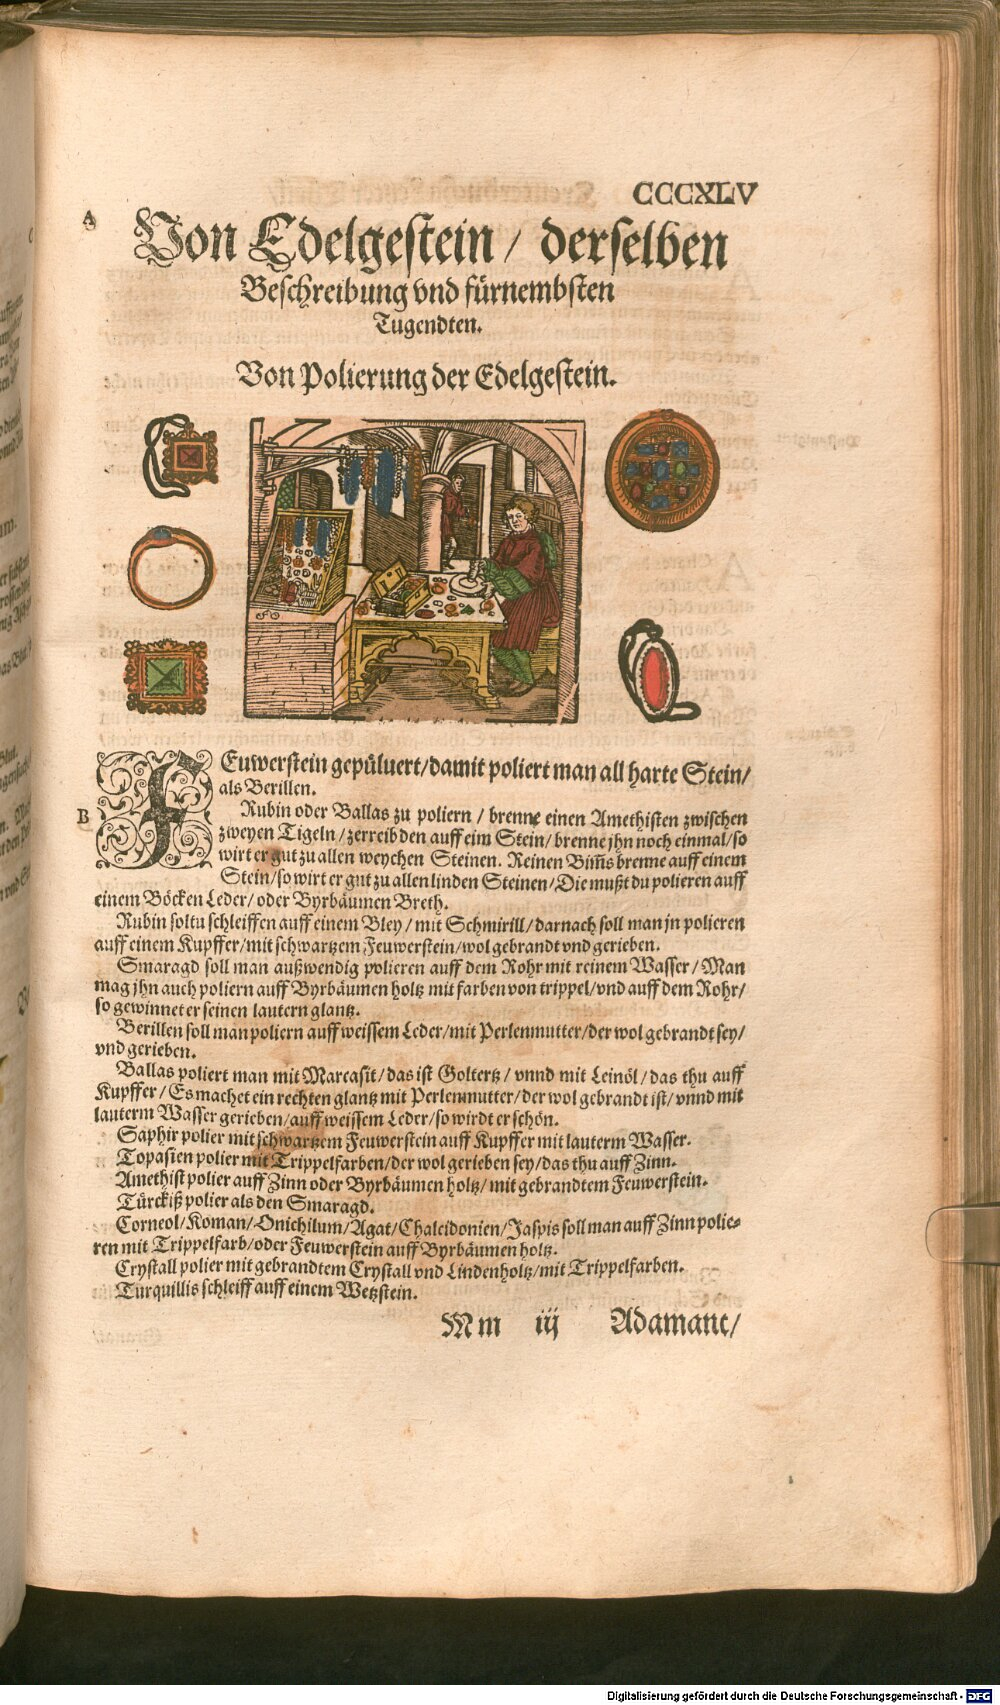 CCCXLV
A
Von Edelgestein / derselben
Beschreibung vnd fürnembsten
Tugendten.
Von Polierung der Edelgestein.
FEuwerstein gepüluert/damit poliert man all harte Stein/
als Berillen.
B
Rubin oder Ballas zu poliern / brenne einen Amethisten zwischen
zweyen Tigeln/zerreib den auff eim Stein/brenne jhn noch einmal/so
wirt er gut zu allen weychen Steinen. Reinen Bim̃s brenne auff einem
Stein/so wirt er gut zu allen linden Steinen/Die mußt du polieren auff
einem Böcken Leder/oder Byrbäumen Breth.
Rubin soltu schleiffen auff einem Bley/mit Schmirill/darnach soll man jn polieren
auff einem Kupffer/mit schwartzem Feuwerstein/wol gebrandt vnd gerieben.
Smaragd soll man außwendig polieren auff dem Rohr mit reinem Wasser/Man
mag jhn auch poliern auff Byrbäumen holtz mit farben von trippel/vnd auff dem Rohr/
so gewinnet er seinen lautern glantz.
Berillen soll man poliern auff weissem Leder/mit Perlenmutter/der wol gebrandt sey/
vnd gerieben.
Ballas poliert man mit Marcasit/das ist Goltertz/vnnd mit Leinöl/das thu auff
Kupffer/Es machet ein rechten glantz mit Perlenmutter/der wol gebrandt ist/vnnd mit
lauterm Wasser gerieben/auff weissem Leder/so wirdt er schön.
Saphir polier mit schwartzem Feuwerstein auff Kupffer mit lauterm Wasser.
Topasien polier mit Trippelfarben/der wol gerieben sey/das thu auff Zinn.
Amethist polier auff Zinn oder Byrbäumen holtz/mit gebrandtem Feuwerstein.
Türckiß polier als den Smaragd.
Corneol/Koman/Onichilum/Agat/Chalcidonien/Jaspis soll man auff Zinn polie-
ren mit Trippelfarb/oder Feuwerstein auff Byrbäumen holtz.
Crystall polier mit gebrandtem Crystall vnd Lindenholtz/mit Trippelfarben.
Turquillis schleiff auff einem Wetzstein.
Mm iij Adamant/
Digitalisierung gefördert durch die Deutsche Forschungsgemeinschaft - DFG